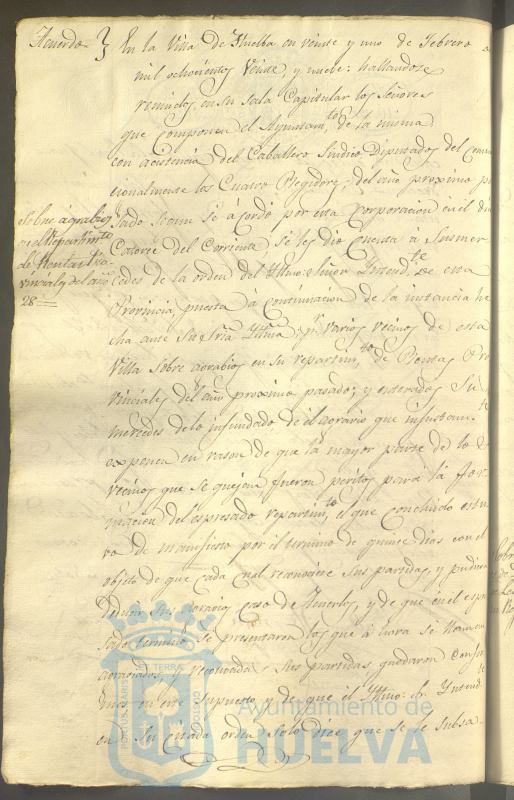 Acuerdo } En la Villa de Huelba en veinte y uno de Febrero
mil ochocientos veinte, y nuebe: hallandose
reunidos en su sala Capitular los Señores
que componen el Ayuntam.to de la misma
con acistencia del Caballero Sindico, Diputados del Comun
cionalmente los Cuatro Regidores, del año proximo pa
sado segun se á cordó por esta Corporacion en el dia
Catorce del Corriente se les dió Cuenta á Susmer
cedes de la orden del Yltmo: Señor Yntend.te de esta
Provincia, puesta á Continuacion de la instancia he
cha ante Su Sría Yltma; p.r varios vecinos de esta
Villa sobre agrabios en su repartim.to de Rentas Pro
vinciales del año proximo pasado; y enterados Su
mercedes de lo infundado de el agravio que injustam.te
exponen en rason de que la mayor parte de los
vecinos que se quejan, fueron peritos para la for
macion del espresado repartim.to, el que concluido estu
vo de manifiesto por el termino de quince dias con el
objeto de que cada cual reconociese sus partidas, y pudiera
deducir sus agravios caso de tenerlos, y de que en el espre
sado termino se presentaron los que á hora se llaman
agraviados, y reconocidas sus partidas quedaron confor
mes en este supuesto, y de que el Yltmo: S.r Yntend.te
en su citada orden solo dice que se le subsa
Sobre agrabios
en el Repartim.to
de Rentas Pro
vinciales del año
28
PORTUS MARIS
ET TERRÆ
CUSTODIA
Ayuntamiento de
HUELVA